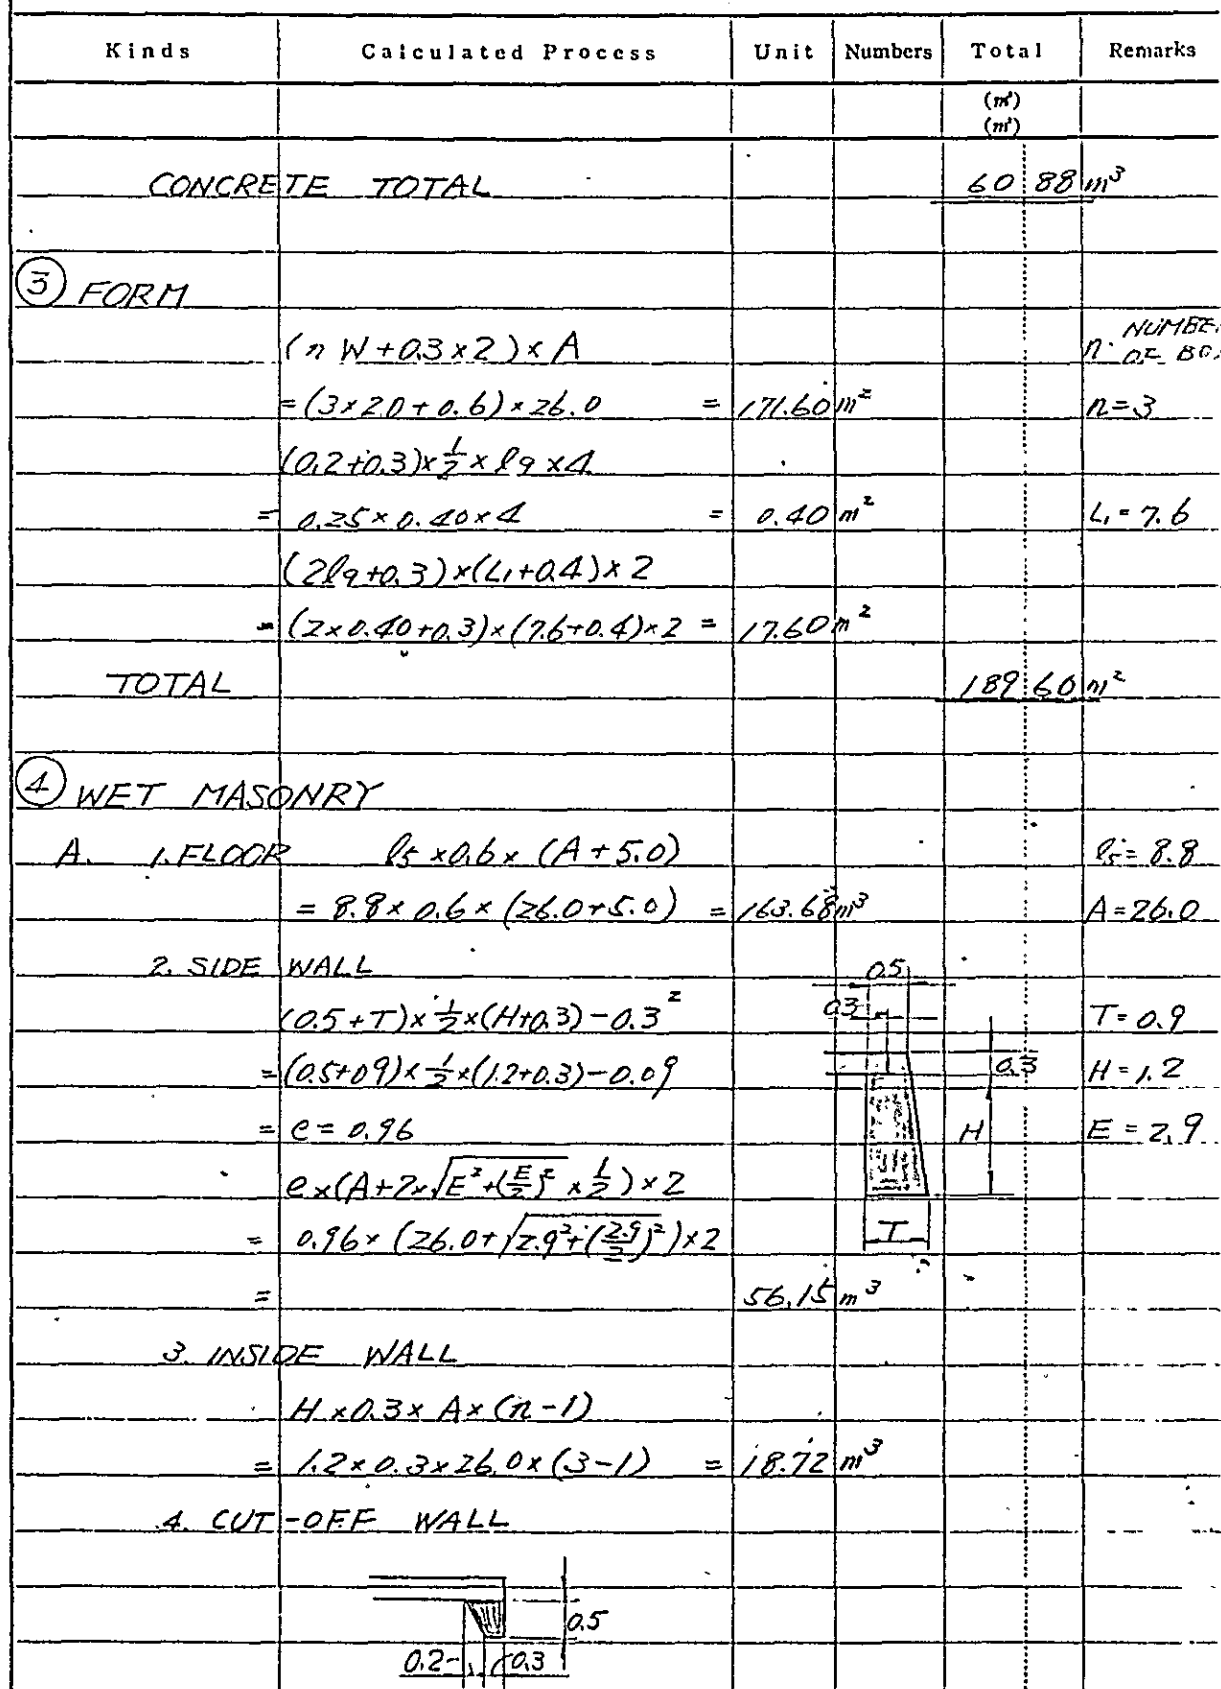 Kinds Calculated Process Unit Numbers Total Remarks
(m³)
(m²)
CONCRETE TOTAL 60 88 m³
③ FORM
(n W+0.3×2)×A n: NUMBE
OF BO
=(3×2.0+0.6)×26.0 = 171.60 m² n=3
(0.2+0.3)×1/2×l9×4
= 0.25×0.40×4 = 0.40 m² L1=7.6
(2l9+0.3)×(L1+0.4)×2
=(2×0.40+0.3)×(7.6+0.4)×2 = 17.60 m²
TOTAL 189 60 m²
④ WET MASONRY
A. 1. FLOOR l5×0.6×(A+5.0) l5=8.8
= 8.8×0.6×(26.0+5.0) = 163.68 m³ A=26.0
2. SIDE WALL 0.5
(0.5+T)×1/2×(H+0.3)-0.3² 0.3 T=0.9
=(0.5+09)×1/2×(1.2+0.3)-0.09 0.3 H=1.2
= e=0.96 H E=2.9
e×(A+2×√E²+(E/2)²×1/2)×2
= 0.96×(26.0+√2.9²+(2.9/2)²)×2 T
= 56.15 m³
3. INSIDE WALL
H×0.3×A×(n-1)
= 1.2×0.3×26.0×(3-1) = 18.72 m³
4. CUT-OFF WALL
0.5
0.2 0.3